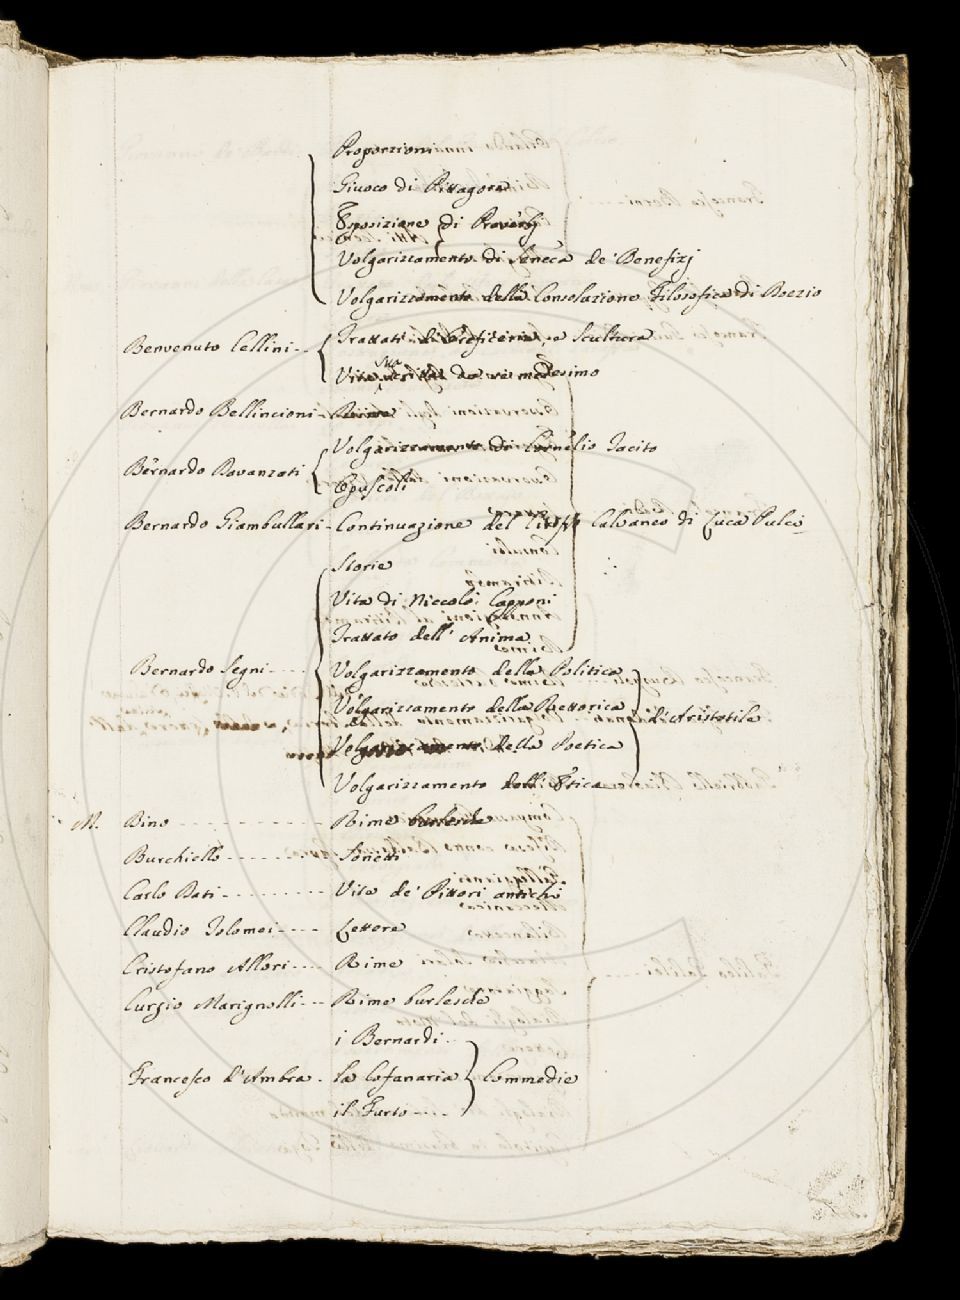 Proporzioni
Giuoco di Pittagora
Esposizione di Proverbj
Volgarizzamento di Seneca de' Benefizj
Volgarizzamento della Consolazione Filosofica di Boezio
Benvenuto Cellini -- Trattati di Oreficeria, e Scultura
Vita sua scritta da se medesimo
Bernardo Bellincioni - Rime
Volgarizzamento di Cornelio Tacito
Bernardo Davanzati
Opuscoli
Bernardo Giambullari - Continuazione del Ciriffo Calvaneo di Luca Pulci
Storie
Vita di Niccolò Capponi
Trattato dell' Anima
Bernardo Segni ---- Volgarizzamento della Politica
Volgarizzamento della Rettorica d'Aristotile
Volgarizzamento della Poetica
Volgarizzamento dell' Etica
M. Bino ---------- Rime burlesche
Burchiello -------- Sonetti
Carlo Dati --------- Vite de' Pittori antichi
Claudio Tolomei ---- Lettere
Cristofano Allori ---- Rime
Curzio Marignolli --- Rime burlesche
i Bernardi -
Francesco d'Ambra - la Cofanaria Commedie
il Furto ----